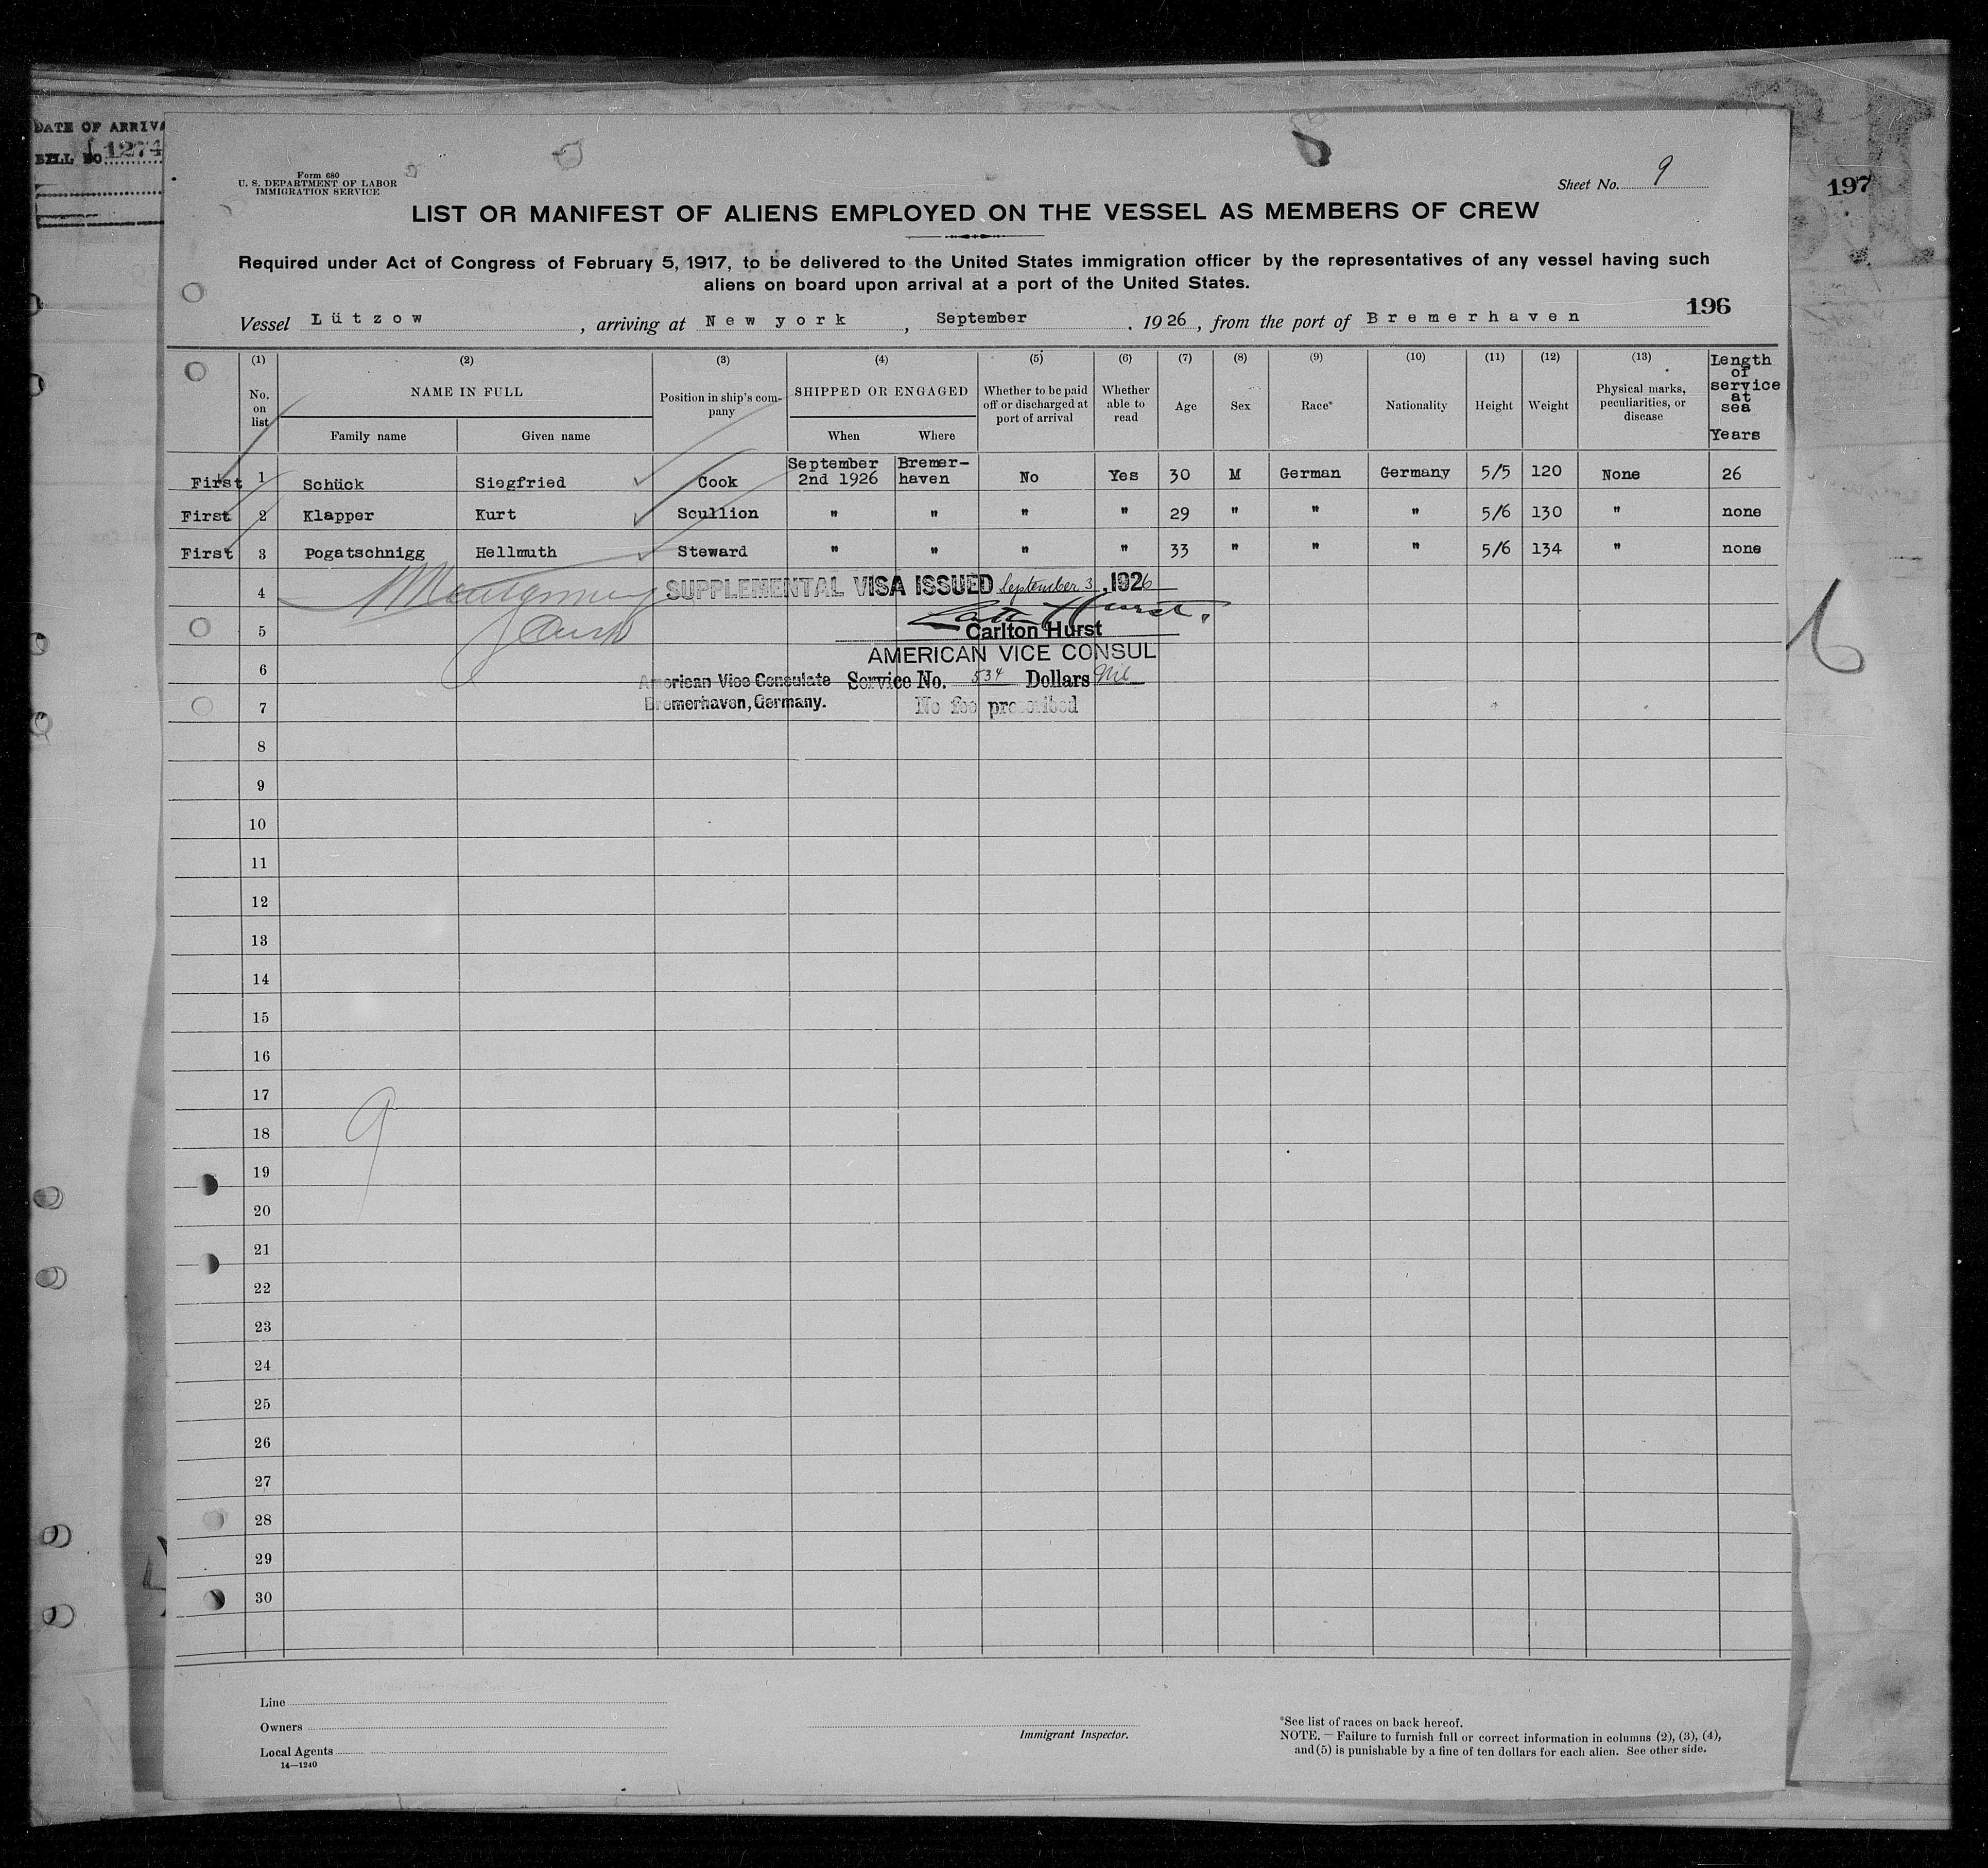 DATE OF ARRIVA
BILL NO 1274
Form 680
U. S. DEPARTMENT OF LABOR
IMMIGRATION SERVICE
Sheet No. 9
197
LIST OR MANIFEST OF ALIENS EMPLOYED ON THE VESSEL AS MEMBERS OF CREW
Required under Act of Congress of February 5, 1917, to be delivered to the United States immigration officer by the representatives of any vessel having such
aliens on board upon arrival at a port of the United States.
196
Vessel Lützow, arriving at New york, September, 1926, from the port of Bremerhaven
(1) (2) (3) (4) (5) (6) (7) (8) (9) (10) (11) (12) (13)
No. on list NAME IN FULL Position in ship's company SHIPPED OR ENGAGED Whether to be paid off or discharged at port of arrival Whether able to read Age Sex Race* Nationality Height Weight Physical marks, peculiarities, or disease Length of service at sea Years
Family name Given name When Where
First 1 Schück Siegfried Cook September 2nd 1926 Bremer-haven No Yes 30 M German Germany 5/5 120 None 26
First 2 Klapper Kurt Scullion " " " " 29 " " " 5/6 130 " none
First 3 Pogatschnigg Hellmuth Steward " " " " 33 " " " 5/6 134 " none
4 SUPPLEMENTAL VISA ISSUED September 3, 1926
5 Carlton Hurst
AMERICAN VICE CONSUL
6 American Vice Consulate Service No. 534 Dollars Nil
7 Bremerhaven, Germany. No fee prescribed
8
9
10
11
12
13
14
15
16
17
9
18
19
20
21
22
23
24
25
26
27
28
29
30
Line
Owners
Local Agents
14—1240
Immigrant Inspector.
*See list of races on back hereof.
NOTE.—Failure to furnish full or correct information in columns (2), (3), (4),
and (5) is punishable by a fine of ten dollars for each alien. See other side.